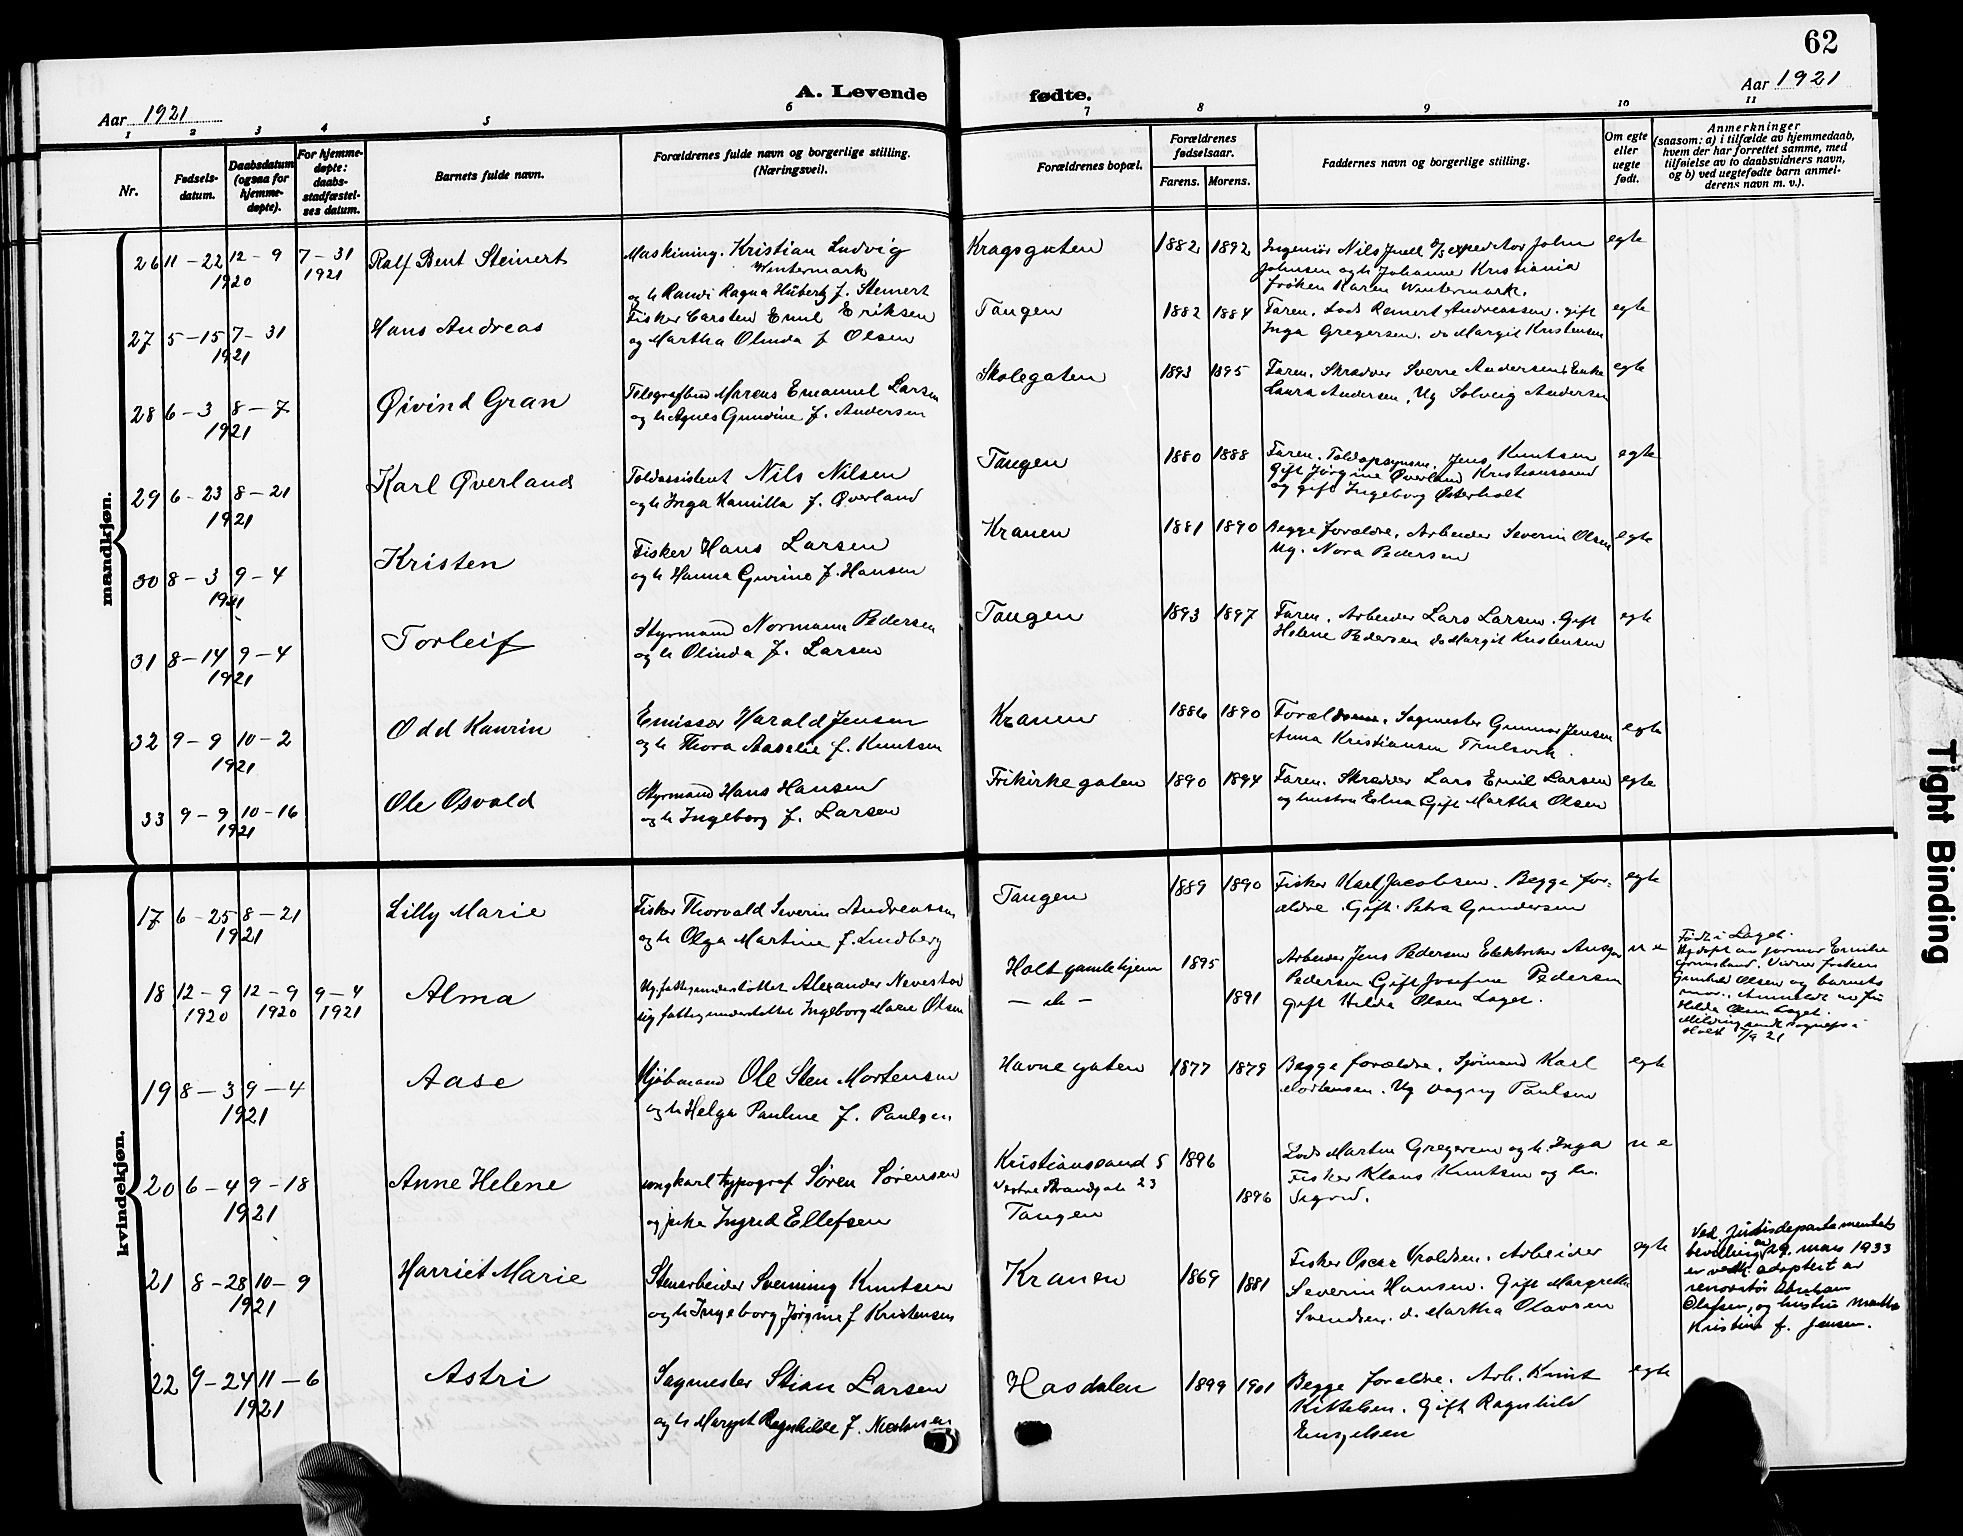 62
A. Levende
fødte.
Aar 1921
Aar 1921
1 2 3 4 5 6
7 8 9 10 11
Nr.
Fødsels-
datum.
Daabsdatum
(ogsaa for
hjemme-
døpte).
For hjemme-
døpte:
daabs-
stadfæstel-
ses datum.
Barnets fulde navn.
Forældrenes fulde navn og borgerlige stilling.
(Næringsvei).
Forældrenes bopæl.
Forældrenes
fødselsaar.
Farens. Morens.
Faddernes navn og borgerlige stilling.
Om egte
eller
uegte
født.
Anmerkninger
(saasom: a) i tilfælde av hjemmedaab,
hvem der har forrettet samme, med
tilføielse av to daabsvidners navn,
og b) ved uegtefødte barn anmel-
derens navn m. v.).
mandkjøn.
26 11-22 12-9 7-31 Ralf Bent Steinert Maskining. Kristian Ludvig Kragsgaten 1882 1892 Ingeniør Nils Juell expeditør John egte
1920 1921 Wintermark Johnsen og h Johanne Kristiania
og h Randi Ragna Hübertz f. Steinert frøken Karen Wintermark.
27 5-15 7-31 Hans Andreas Fisker Carsten Emil Eriksen Tangen 1882 1884 Faren. Lods Reinert Andreassen. gift egte
1921 og Martha Olinda f Olsen Inga Gregersen. do Margit Kristensen
28 6-3 8-7 Øivind Gran Marcus Emanuel Larsen Skolegaten 1893 1895 Faren. Skrædder Sverre Andersen Enke egte
1921 og h Agnes Gundine f. Andersen Laura Andersen, Ug Solveig Andersen
29 6-23 8-21 Karl Øverland Toldassistent Nils Nilsen Tangen 1880 1888 Faren. Jens Knutsen egte
1921 og h Inga Kamilla f. Øverland Gift Jørgine Øverland Kristianssand
og gift Ingeborg Østerholt
30 8-3 9-4 Kristen Fisker Hans Larsen Kranen 1881 1890 Begge forældre, Arbeider Severin Olsen egte
1921 og h Hanna Gurine f. Hansen Ug. Nora Pedersen
31 8-14 9-4 Torleif Styrmand Normann Pedersen Tangen 1893 1897 Faren, Arbeider Lars Larsen. Gift egte
1921 og h Olinda f. Larsen Helene Pedersen do Margit Kristensen
32 9-9 10-2 Odd Kaurin Emissær Harald Jensen Kranen 1886 1890 Forældrene, Sagmester Gunnar Jensen egte
1921 og h Thora Aaselie f. Knutsen Anna Kristiansen Trulsvik.
33 9-9 10-16 Ole Osvald Styrmand Hans Hansen Frikirkegaten 1890 1894 Faren. Skrædder Lars Emil Larsen egte
1921 og h Ingeborg f. Larsen og hustru Edna Gift Martha Olsen
kvindekjøn.
17 6-25 8-21 Lilly Marie Fisker Thorvald Severin Andreassen Tangen 1889 1890 Fisker Karl Jacobsen. Begge for- egte
1921 og h Olga Martine f. Lindberg ældre. Gift Petra Gundersen
18 12-9 12-9 9-4 Alma Ug. fattigunderstøttet Alexander Nevestad Holt gamlehjem 1895 Arbeider Jens Pedersen Elektriker Ansgar u e
1920 1920 1921 Ug fattigunderstøttet Ingeborg Marie Olsen — do — 1891 Pedersen Gift Josefine Pedersen
gift Hilda Olsen Laget.
Født i Laget.
Hjdøpt av jormor Emilie
Grimsland. Vidner frøken
Gunhild Olsen og barnets
mor. Anmeldt av fru
Hilda Olsen Laget.
Holt 7/9 21
19 8-3 9-4 Aase Kjøbmand Ole Sten Mortensen Havnegaten 1877 1879 Begge forældre, Sjømand Karl egte
1921 og h Helga Pauline f. Paulsen Mortensen. Ug Dagny Paulsen
20 6-4 9-18 Anne Helene ungkarl typograf Søren Sørensen Kristianssand S 1896 Lods Martin Gregersen og h. Inga u e
1921 og pike Ingrid Ellefsen Vestre Strandgate 23 1896 Fisker Klaus Knutsen og h.
Tangen Sigrid.
21 8-28 10-9 Harriet Marie Stenarbeider Svenning Knutsen Kranen 1869 1881 Fisker Oscar Arbeider egte
1921 og h Ingeborg Jørgine f Kristensen Severin Hansen. Gift Margrethe
Svendsen. d. Martha Olavsen
Ved Justisdepartementets
bevilling av 29. mars 1933
er vedk. adoptert av
renovatør Abraham
Olafsen, og hustru Martha
Kristine f. Jensen.
22 9-24 11-6 Astri Sagmester Stian Larsen Hasdalen 1899 1901 Begge forældre. Arb. Knut egte
1921 og h Margit Ragnhilde f. Kittelsen. Gift Ragnhild
Engelsen
Tight Binding